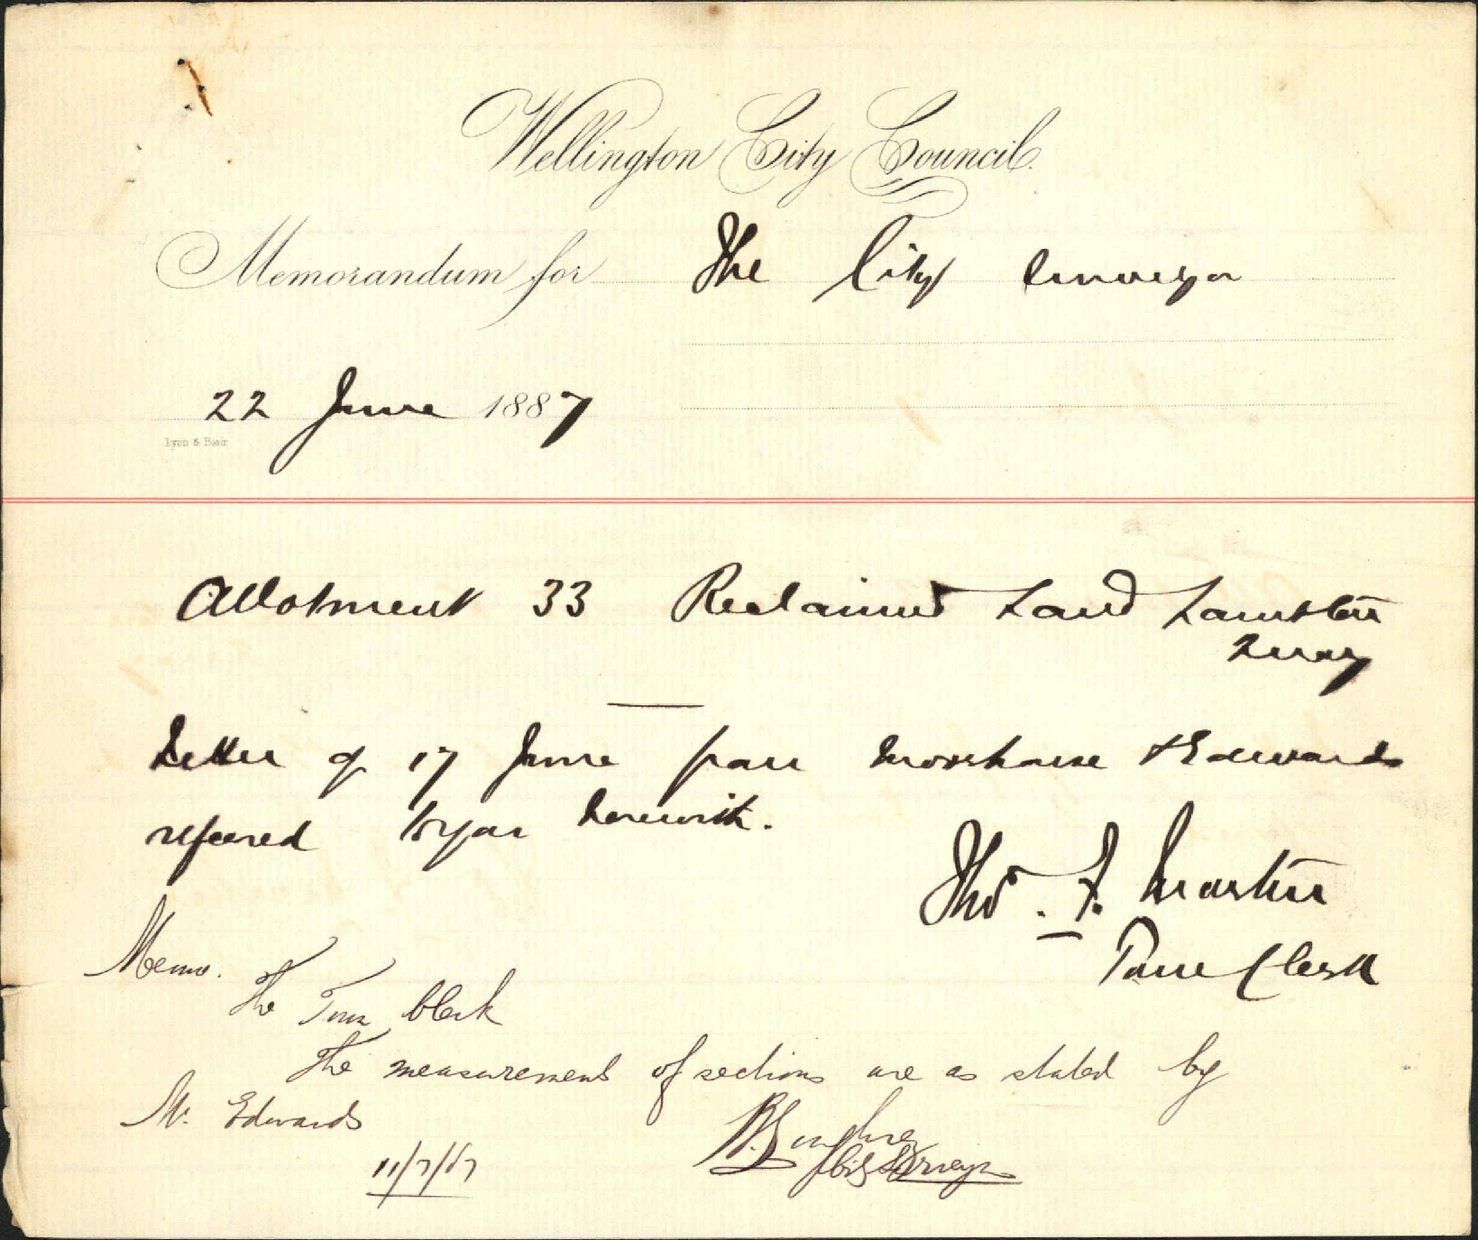 Wellington City Council.
Memorandum for The City Surveyor
22 June 1887
Lyon & Blair
Allotment 33 Reclaimed Land Lambton
Quay
Letter of 17 June from Moorhouse & Edwards
refered to you herewith.
Thos. F. Martin
Town Clerk
Memo.
The Town Clerk
The measurements of sections are as stated by
Mr. Edwards
11/7/87
City Surveyor